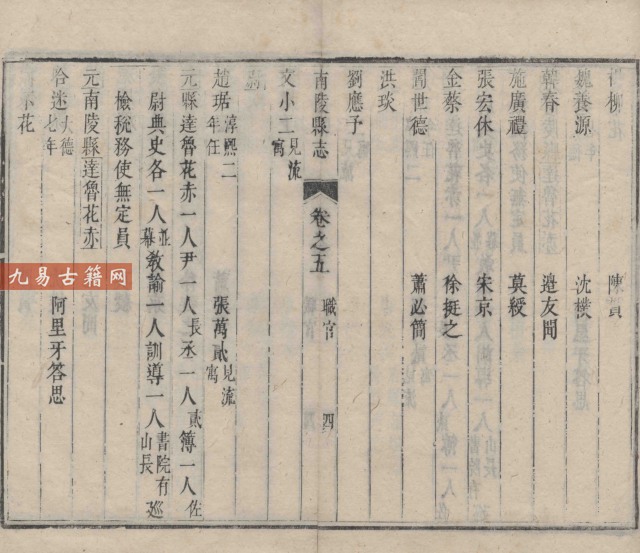 柳　陳
魏養源　沈樸
韓眷　邉友聞
施廣禮　莫綬
張宏休　宋京
金蔡　徐挺之
閻世德　蕭必簡
洪琰
劉應予
南陵縣志　卷之五　職官　四
文小二見流寓
趙琚淳熙二年任　張萬貳見流寓
元縣達魯花赤一人尹一人長丞一人貳簿一人佐
尉典史各一人並幕教諭一人訓導一人書院有山長廵
檢税務使無定員
元南陵縣達魯花赤
合迷大德七年　阿里牙答思
不花
九易古籍网